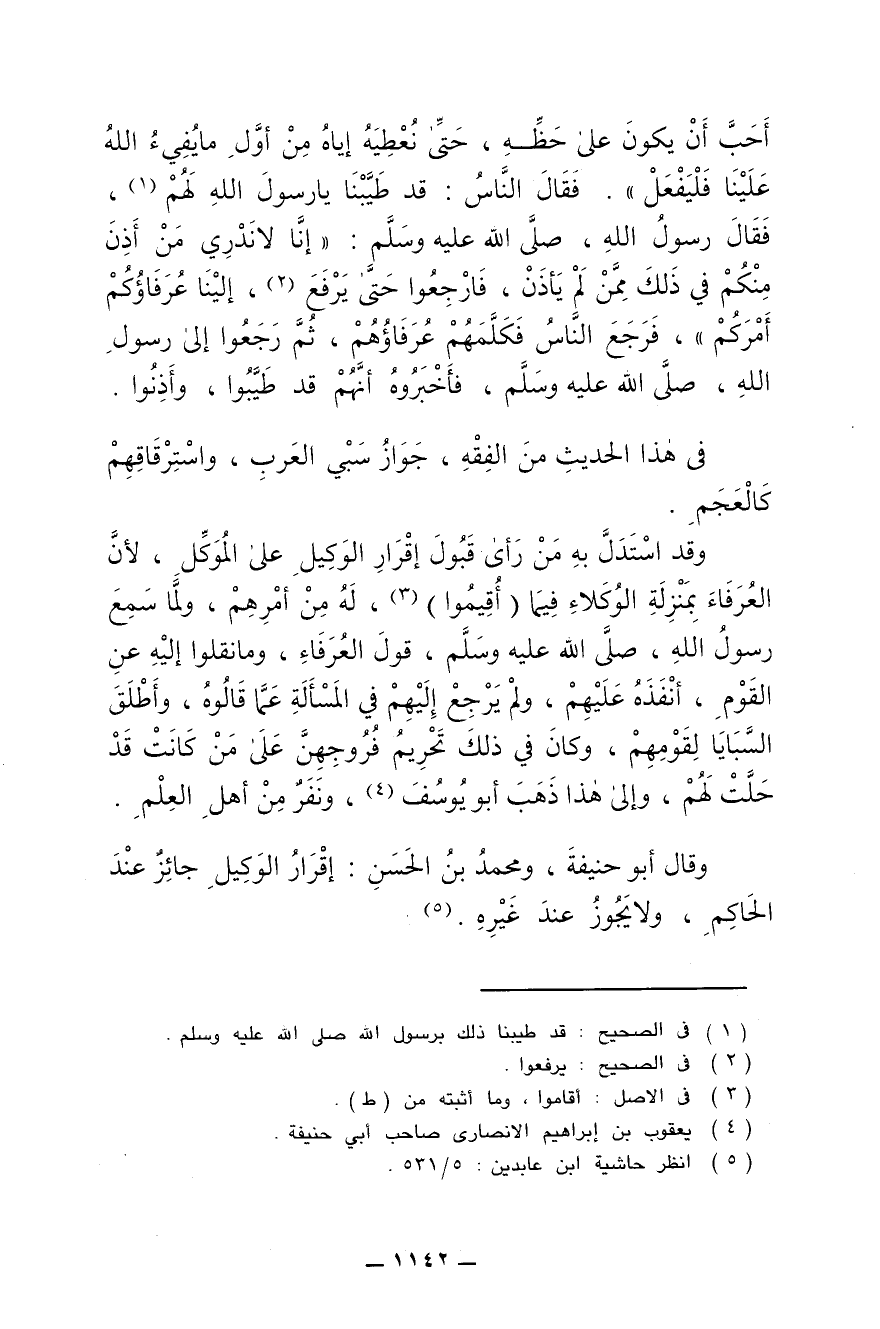 أَحَبَّ أَنْ يكونَ علىٰ حَظِّـهِ ، حَتىّٰ نُعْطِيَهُ إياهُ مِنْ أوَّلِ مايُفِيءُ اللهُ
عَلَيْنَا فَلْيَفْعَلْ » . فَقَالَ النَّاسُ : قد طَيَّبْنَا يارسولَ اللهِ لَهُمْ (١) ،
فَقَالَ رسولُ اللهِ ، صلَّى الله عليه وسَلَّم : « إنَّا لانَدْرِي مَنْ أَذِنَ
مِنْكُمْ في ذَلكَ مِمَّنْ لَمْ يَأذَنْ ، فَارْجِعُوا حَتىَّ يَرْفَعَ (٢) ، إليْنَا عُرَفَاؤُكُمْ
أمْرَكُمْ » ، فَرَجَعَ النَّاسُ فَكَلَّمَهُمْ عُرَفَاؤُهُمْ ، ثُمَّ رَجَعُوا إلىٰ رسولِ
اللهِ ، صلَّى الله عليه وسَلَّم ، فأَخْبَرُوهُ أنَّهُمْ قد طَيَّبُوا ، وأَذِنُوا .
فى هٰذا الحديثِ منَ الفِقْهِ ، جَوَازُ سَبْي العَربِ ، واسْتِرْقَاقِهِمْ
كَالْعَجَمِ .
وقد اسْتَدَلَّ بهِ مَنْ رَأىٰ قَبُولَ إقْرَارِ الوَكيلِ علىٰ المُوَكِّلِ ، لأنَّ
العُرَفَاءَ بمَنْزِلَةِ الوُكَلاءِ فِيمَا ( أُقِيمُوا ) (٣) ، لَهُ مِنْ أمْرِهِمْ ، ولمَّا سَمِعَ
رسولُ اللهِ ، صلَّى الله عليه وسَلَّم ، قولَ العُرَفَاءِ ، ومانقلوا إليْهِ عنِ
القَوْمِ ، أنْفَذَهُ عَلَيْهِمْ ، ولمْ يَرْجِعْ إِلَيْهِمْ في المَسْألَةِ عَمَّا قَالُوهُ ، وأَطْلَقَ
السَّبَايَا لِقَوْمِهِمْ ، وكانَ في ذلكَ تَحْرِيمُ فُرُوجِهِنَّ عَلَىٰ مَنْ كَانَتْ قَدْ
حَلَّتْ لَهُمْ ، وإلىٰ هٰذا ذَهَبَ أبو يُوسُفَ (٤) ، ونَفَرٌ مِنْ أهلِ العِلْمِ .
وقال أبو حنيفةَ ، ومحمدُ بنُ الحَسَنِ : إقْرَارُ الوَكيلِ جائِزٌ عنْدَ
الحَاكِمِ ، ولايَجُوزُ عندَ غَيْرِهِ . (٥)
( ١ ) فى الصحيح : قد طيبنا ذلك برسول الله صلى الله عليه وسلم .
( ٢ ) فى الصحيح : يرفعوا .
( ٣ ) فى الاصل : أقاموا ، وما أثبته من ( ط ) .
( ٤ ) يعقوب بن إبراهيم الانصارى صاحب أبي حنيفة .
( ٥ ) انظر حاشية ابن عابدين : ٥/ ٥٣١ .
ــ ١١٤٢ ــ